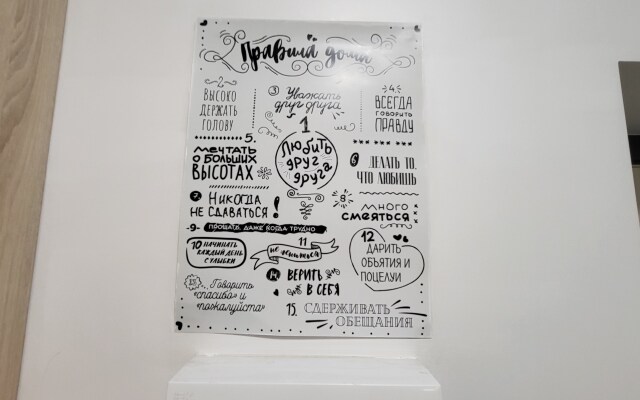 Правила дома
2
Высоко
держать
голову
3 Уважать
друг друга
4.
Всегда
говорить
правду
1
Любить
друг
друга
5.
Мечтать
о больших
высотах
6 Делать то,
что любишь
7 Никогда
не сдаваться!
8
Много
смеяться
-9- Прощать, даже когда трудно
10 Начинать
каждый день
с улыбки
11
12
Дарить
объятия и
поцелуи
13 Говорить
«спасибо» и
«пожалуйста»
14 Верить
в себя
15. Сдерживать
обещания